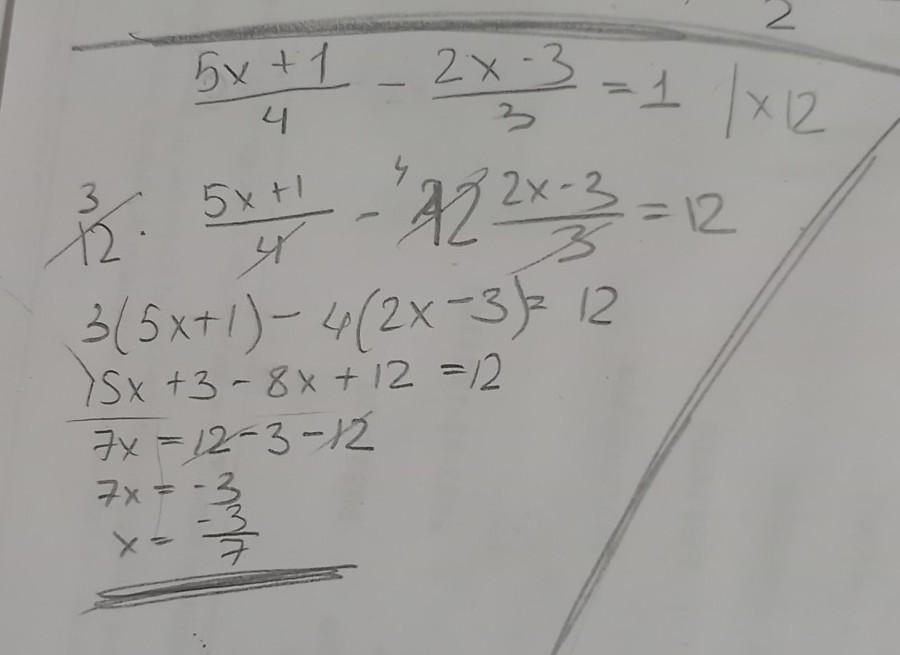 2
(5x + 1)/4 - (2x - 3)/3 = 1 | x 12
3 12 · (5x + 1)/4 - 4 12 (2x - 3)/3 = 12
3(5x + 1) - 4(2x - 3) = 12
15x + 3 - 8x + 12 = 12
7x = 12 - 3 - 12
7x = -3
x = -3/7